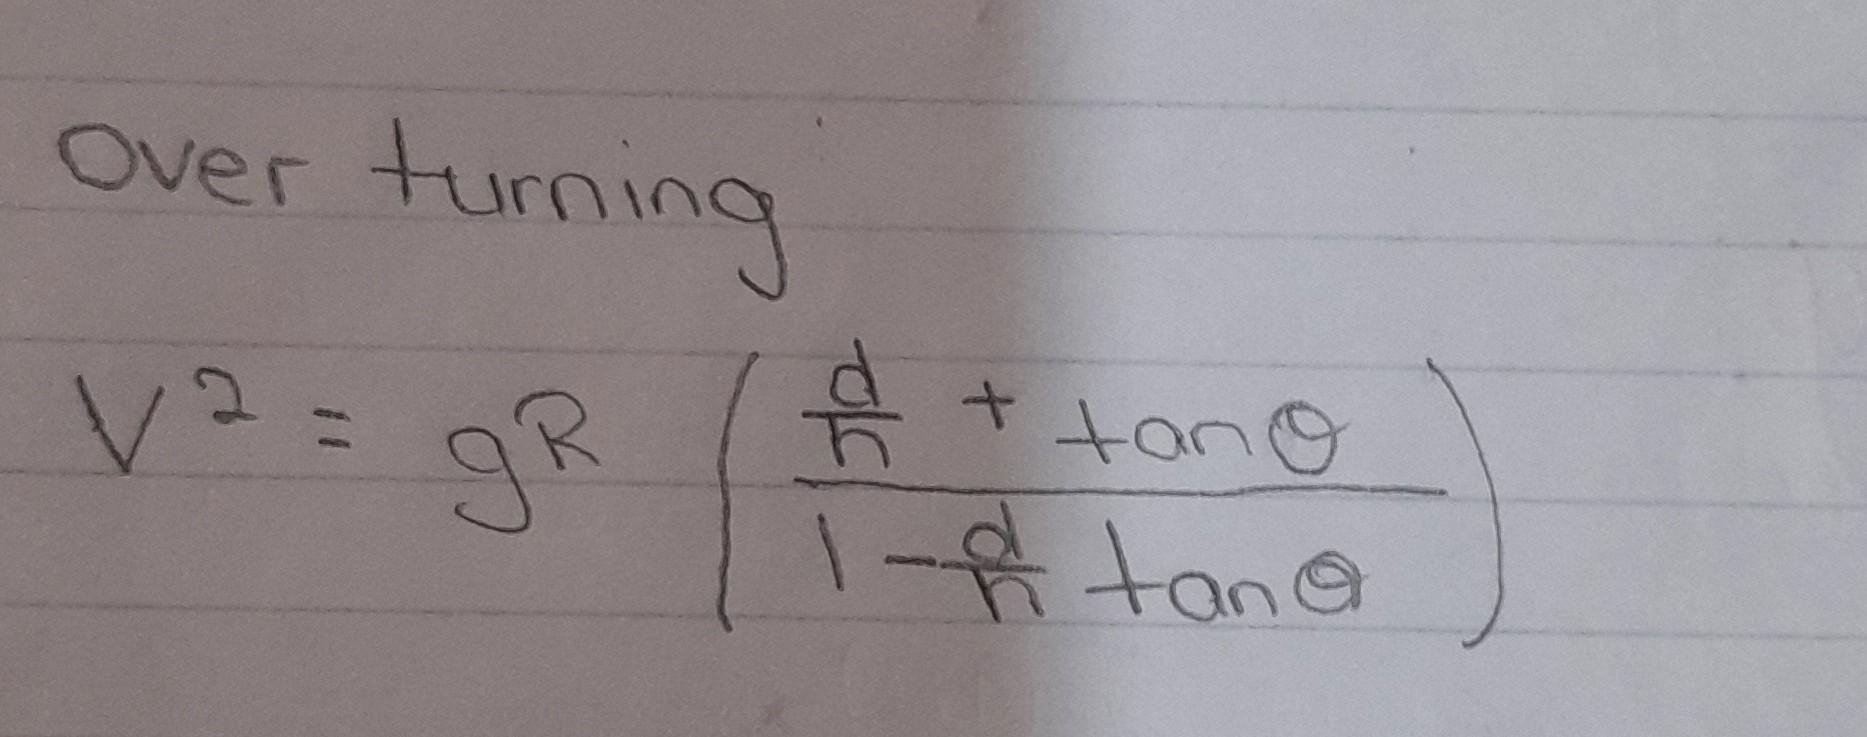 Over turning
V² = gR ( (d/h + tanθ) / (1 - d/h tanθ) )